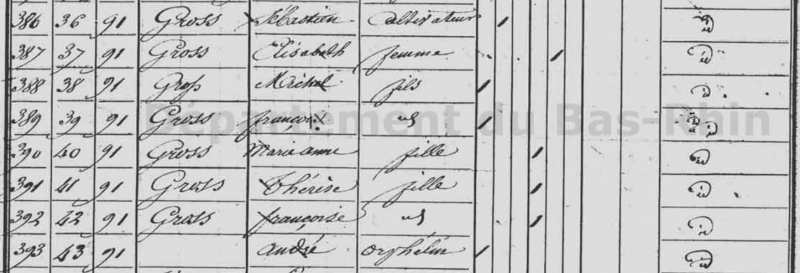 386 36 91 Gross Sébastien Cultivateur
387 37 91 Gross Elisabeth femme
388 38 91 Gross Michel fils
389 39 91 Gross françois id
390 40 91 Gross Marie anne fille
391 41 91 Gross Thérèse fille
392 42 91 Gross françoise id
393 43 91 andré orphélin
Département du Bas-Rhin